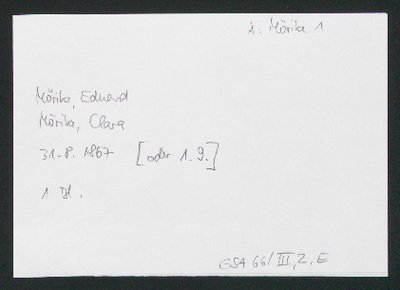 z: Mörike 1
Mörike, Eduard
Mörike, Clara
31.8.1867 [oder 1.9.]
1 Bl.
GSA 66/III,2,E